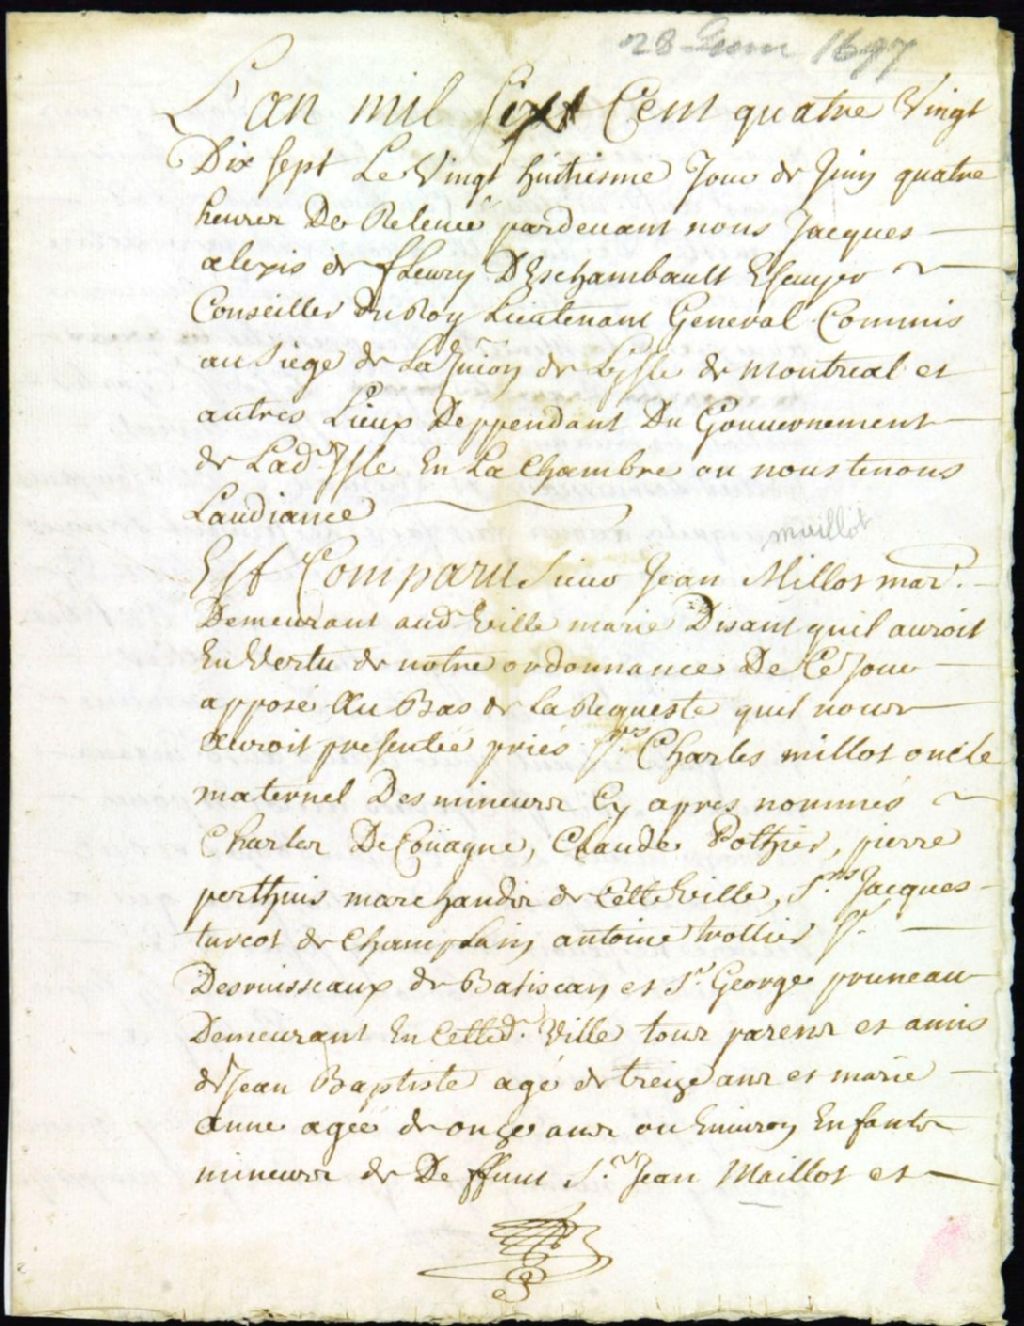 28 Juin 1697
L'an mil six Cent quatre Vingt
Dix sept Le Vingt huitiesme Jour de Juin quatre
heures De Relevée pardevant nous Jacques
alexis de fleury DEschambault Escuyer
Conseiller du Roy Lieutenant General Commis
au siege de La Juion de Lisle de Montreal et
autres Lieux Deppendant Du Gouvernement
de Lad. Isle En La Chambre ou nous tenons
Laudiance
maillot
Est Comparu Sieur Jean Millot mar.
Demeurant aud. Ville marie Disant quil auroit
En Vertu de notre ordonnance De Ce Jour
apposé Au Bas de La Requeste quil nous
auroit presentée priés Srs Charles millot oncle
maternel Des mineurs Cy apres nommés
Charles De Coüagne, Claude Pothier, pierre
perthuis marchandz de Cette Ville, Srs Jacques
turcot de Champlain antoine trottier Sr.
Desruisseaux de Batiscan et Sr. George pruneau
Demeurant En Cetted. Ville tous parens et amis
de Jean Baptiste agé de treize ans et marie
anne agée de onze ans ou Environ Enfants
mineurs de Deffunt Sr. Jean Maillot et